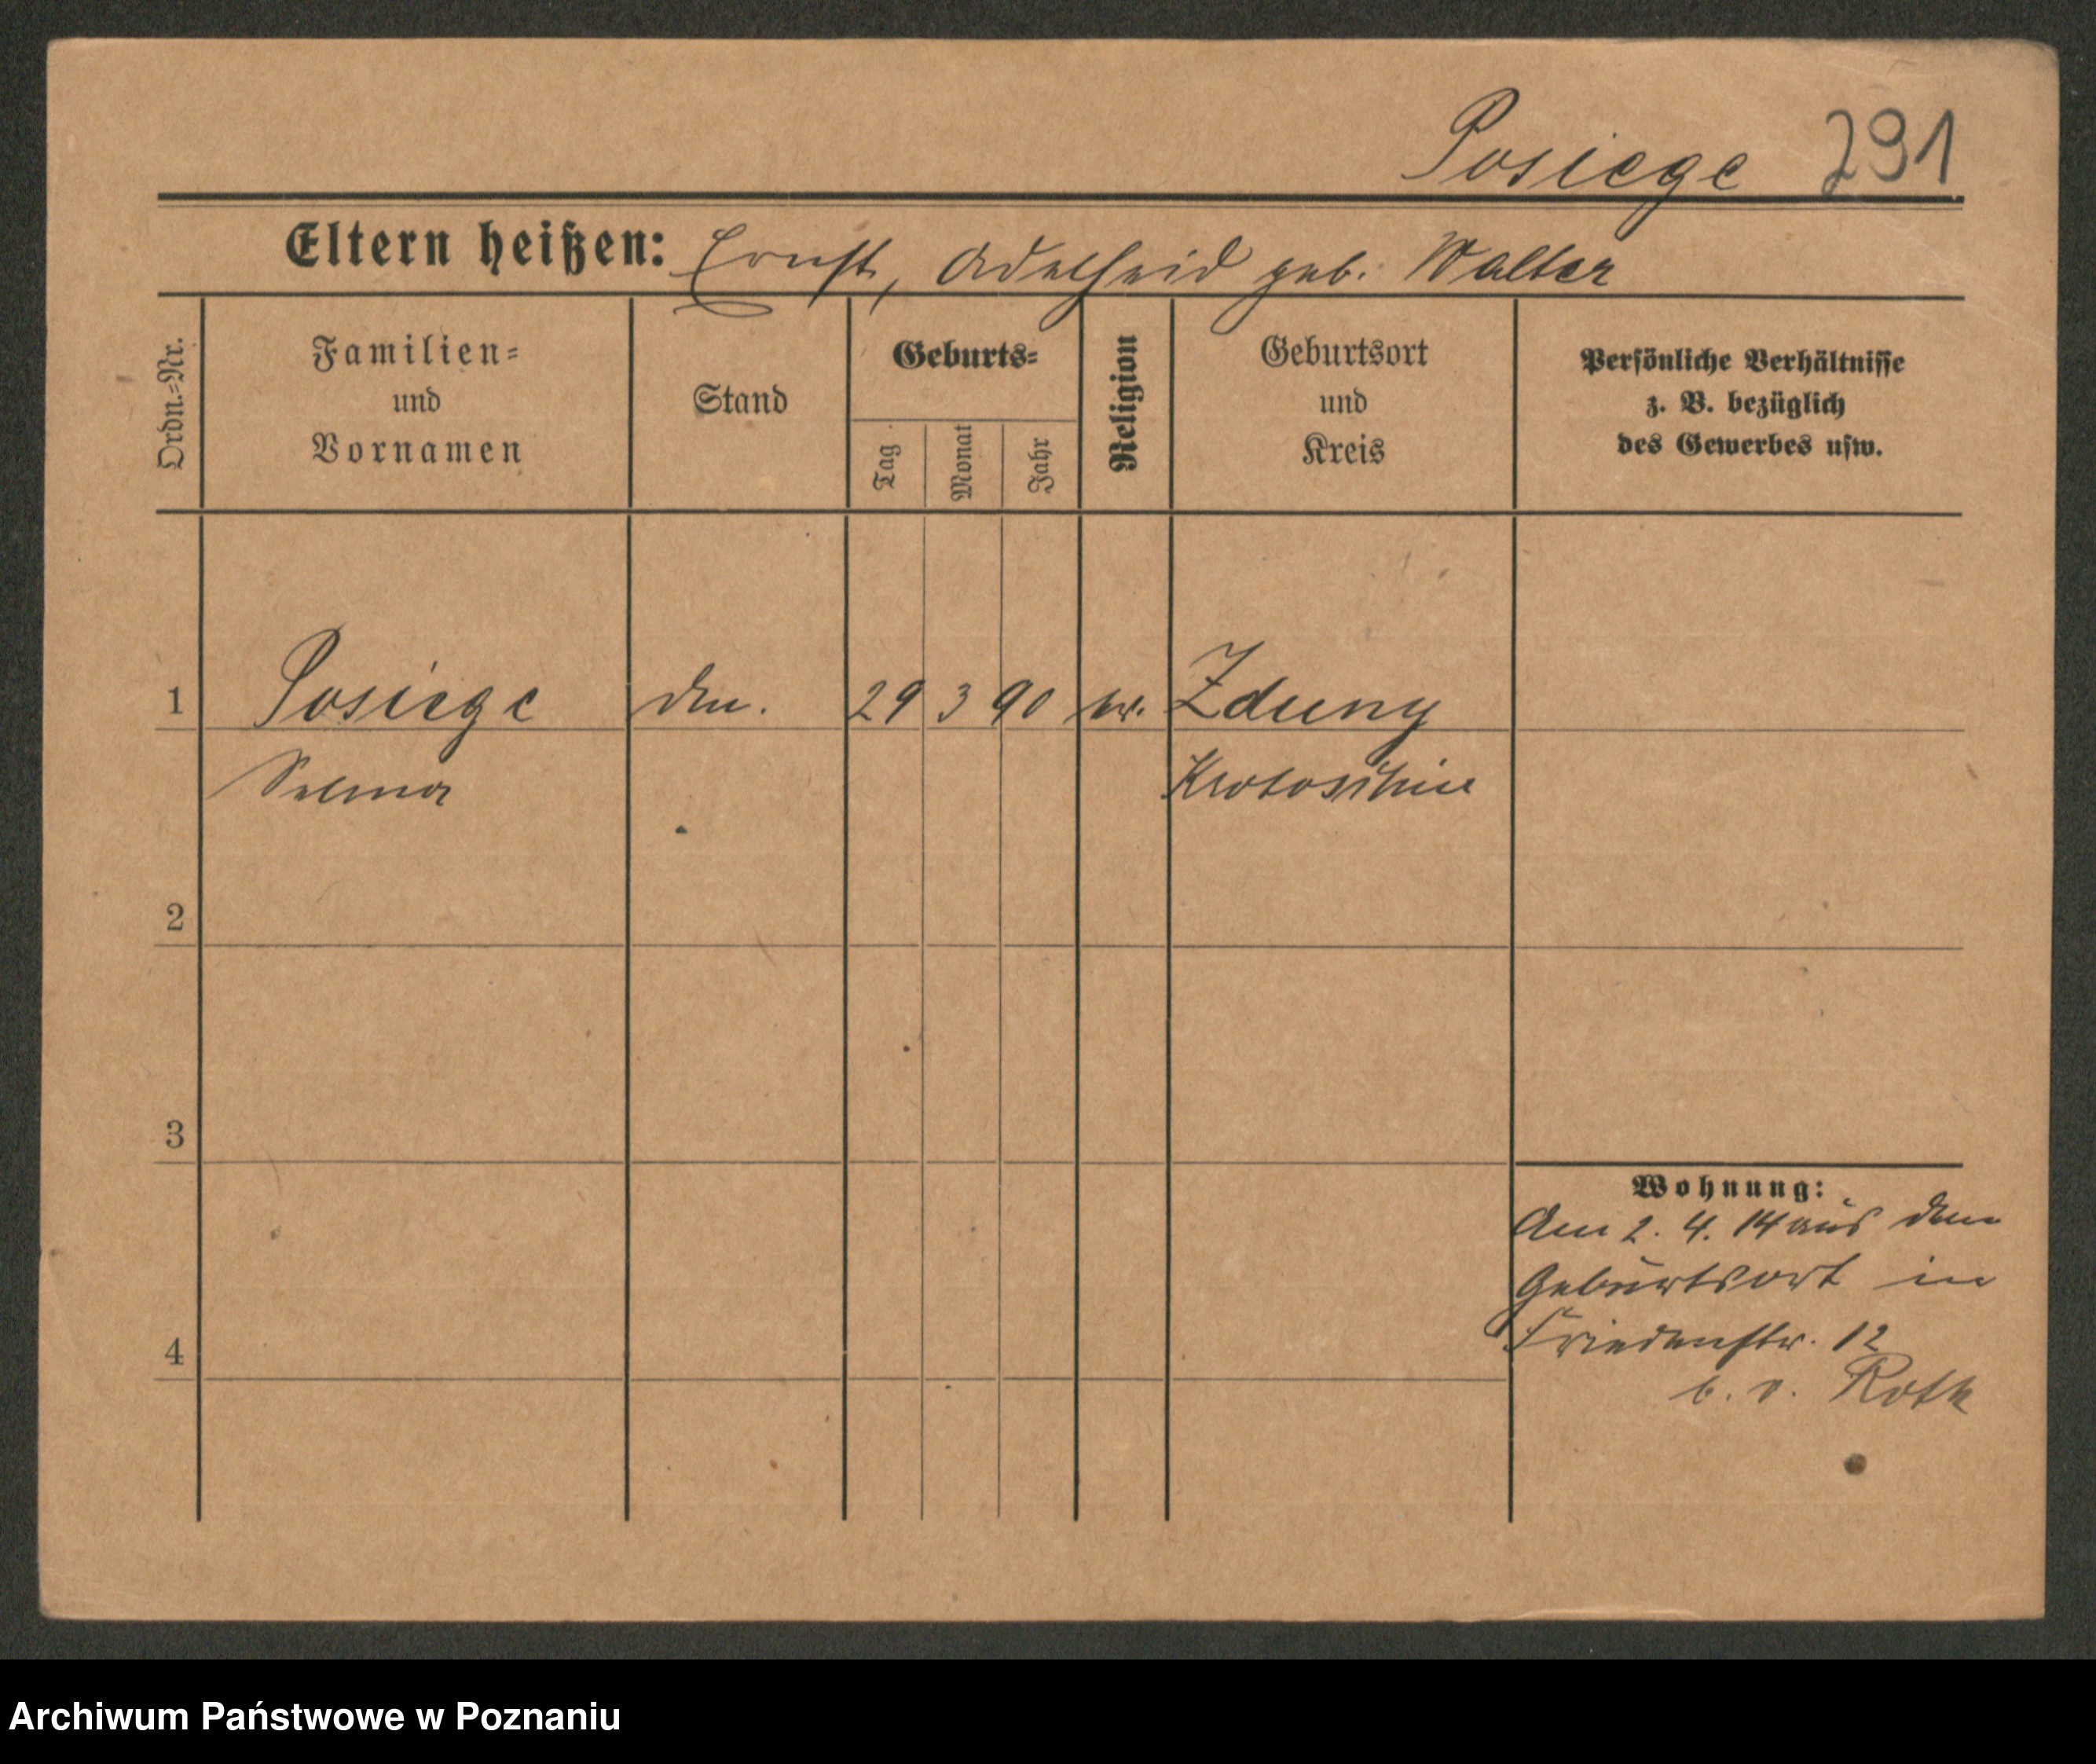 Posiege 291
Eltern heißen: Ernst, Adelheid geb. Walter
Ordn.=Nr.
Familien=
und
Vornamen
Stand
Geburts=
Tag
Monat
Jahr
Religion
Geburtsort
und
Kreis
Persönliche Verhältnisse
z. B. bezüglich
des Gewerbes usw.
1 Posiege 29 3 90 Zduny
Selma Krotoschin
2
3
Wohnung:
Am 2. 4. 14 aus dem
Geburtsort in
4 Friedenstr. 12
b. v. Roth
Archiwum Państwowe w Poznaniu